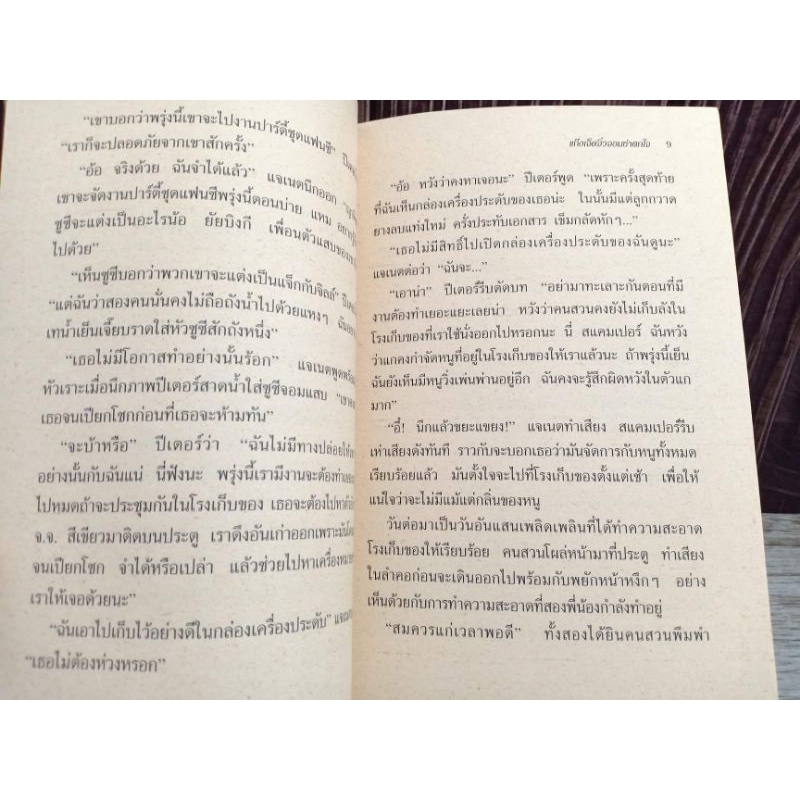 “เขาบอกว่าพรุ่งนี้เขาจะไปงานปาร์ตี้ชุดแฟนซี”
“เราก็จะปลอดภัยจากเขาสักครั้ง”
“อ้อ จริงด้วย ฉันจำได้แล้ว” แจเนตนึกออก
เขาจะจัดงานปาร์ตี้ชุดแฟนซีพรุ่งนี้ตอนบ่าย แหม
ซูซีจะแต่งเป็นอะไรน้อ ยัยบิงกี เพื่อนตัวแสบของ
ไปด้วย”
“เห็นซูซีบอกว่าพวกเขาจะแต่งเป็นแจ็กกับจิลล์”
“แต่ฉันว่าสองคนนั่นคงไม่ถือถังน้ำไปด้วยแหงๆ
เทน้ำเย็นเจี๊ยบราดใส่หัวซูซีสักถังหนึ่ง”
“เธอไม่มีโอกาสทำอย่างนั้นร้อก” แจเนตพูด
หัวเราะเมื่อนึกภาพปีเตอร์สาดน้ำใส่ซูซีจอมแสบ
เธอจนเปียกโชกก่อนที่เธอจะห้ามทัน”
“จะบ้าหรือ” ปีเตอร์ว่า “ฉันไม่มีทางปล่อยให้
อย่างนั้นกับฉันแน่ นี่ฟังนะ พรุ่งนี้เรามีงานจะต้องทำ
ไปหมดถ้าจะประชุมกันในโรงเก็บของ เธอจะต้องไปหา
จ.จ. สีเขียวมาติดบนประตู เราดึงอันเก่าออกเพราะมัน
จนเปียกโชก จำได้หรือเปล่า แล้วช่วยไปหาเครื่องหมาย
เราให้เจอด้วยนะ”
“ฉันเอาไปเก็บไว้อย่างดีในกล่องเครื่องประดับ”
“เธอไม่ต้องห่วงหรอก”
แก๊งเจ็ดจิ๋วจอมฝ่าตกใจ 9
“อ้อ หวังว่าคงหาเจอนะ” ปีเตอร์พูด “เพราะครั้งสุดท้าย
ที่ฉันเห็นกล่องเครื่องประดับของเธอน่ะ ในนั้นมีแต่ลูกกวาด
ยางลบแท่งใหม่ ครั่งประทับเอกสาร เข็มกลัดหักๆ...”
“เธอไม่มีสิทธิ์ไปเปิดกล่องเครื่องประดับของฉันดูนะ”
แจเนตต่อว่า “ฉันจะ...”
“เอาน่า” ปีเตอร์รีบตัดบท “อย่ามาทะเลาะกันตอนที่มี
งานต้องทำเยอะแยะเลยน่า หวังว่าคนสวนคงยังไม่เก็บลังใน
โรงเก็บของที่เราใช้นั่งออกไปหรอกนะ นี่ สแคมเปอร์ ฉันหวัง
ว่าแกคงกำจัดหนูที่อยู่ในโรงเก็บของให้เราแล้วนะ ถ้าพรุ่งนี้เย็น
ฉันยังเห็นมีหนูวิ่งเพ่นพ่านอยู่อีก ฉันคงจะรู้สึกผิดหวังในตัวแก
มาก”
“อี๋! นึกแล้วขยะแขยง!” แจเนตทำเสียง สแคมเปอร์รีบ
เห่าเสียงดังทันที ราวกับจะบอกเธอว่ามันจัดการกับหนูทั้งหมด
เรียบร้อยแล้ว มันตั้งใจจะไปที่โรงเก็บของตั้งแต่เช้า เพื่อให้
แน่ใจว่าจะไม่มีแม้แต่กลิ่นของหนู
วันต่อมาเป็นวันอันแสนเพลิดเพลินที่ได้ทำความสะอาด
โรงเก็บของให้เรียบร้อย คนสวนโผล่หน้ามาที่ประตู ทำเสียง
ในลำคอก่อนจะเดินออกไปพร้อมกับพยักหน้าหงึกๆ อย่าง
เห็นด้วยกับการทำความสะอาดที่สองพี่น้องกำลังทำอยู่
“สมควรแก่เวลาพอดี” ทั้งสองได้ยินคนสวนพึมพำ